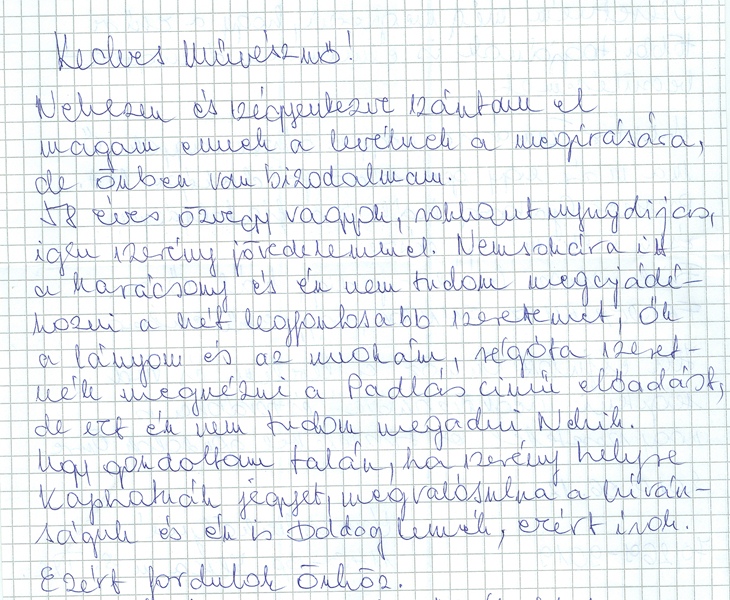 Kedves Művésznő!
Nehezen és szégyenkezve szántam el
magam ennek a levélnek a megírására,
de Önben van bizodalmam.
58 éves özvegy vagyok, rokkant nyugdíjas,
igen szerény jövedelemmel. Nemsokára itt
a Karácsony és én nem tudom megajándé-
kozni a két legfontosabb szerettemet, Ők
a lányom és az unokám, régóta szeret-
nék megnézni a Padlás című előadást,
de ezt én nem tudom megadni Nekik.
Úgy gondoltam talán, ha szerény helyre
kaphatnák jegyet, megvalósulna a kíván-
ságuk és én is boldog lennék, ezért írok.
Ezért fordulok Önhöz.